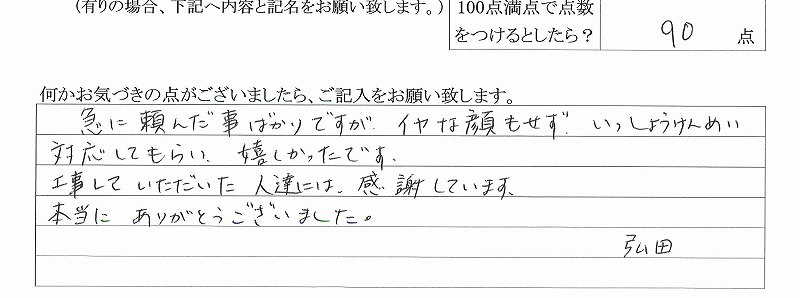 (有りの場合、下記へ内容と記名をお願い致します。)
100点満点で点数
をつけるとしたら?
90 点
何かお気づきの点がございましたら、ご記入をお願い致します。
急に頼んだ事ばかりですが、イヤな顔もせず、いっしょうけんめい
対応してもらい、嬉しかったです。
工事していただいた人達には、感謝しています。
本当にありがとうございました。
弘田